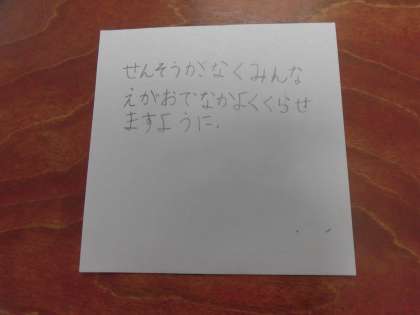 せんそうがなくみんな
えがおでなかよくくらせ
ますように.